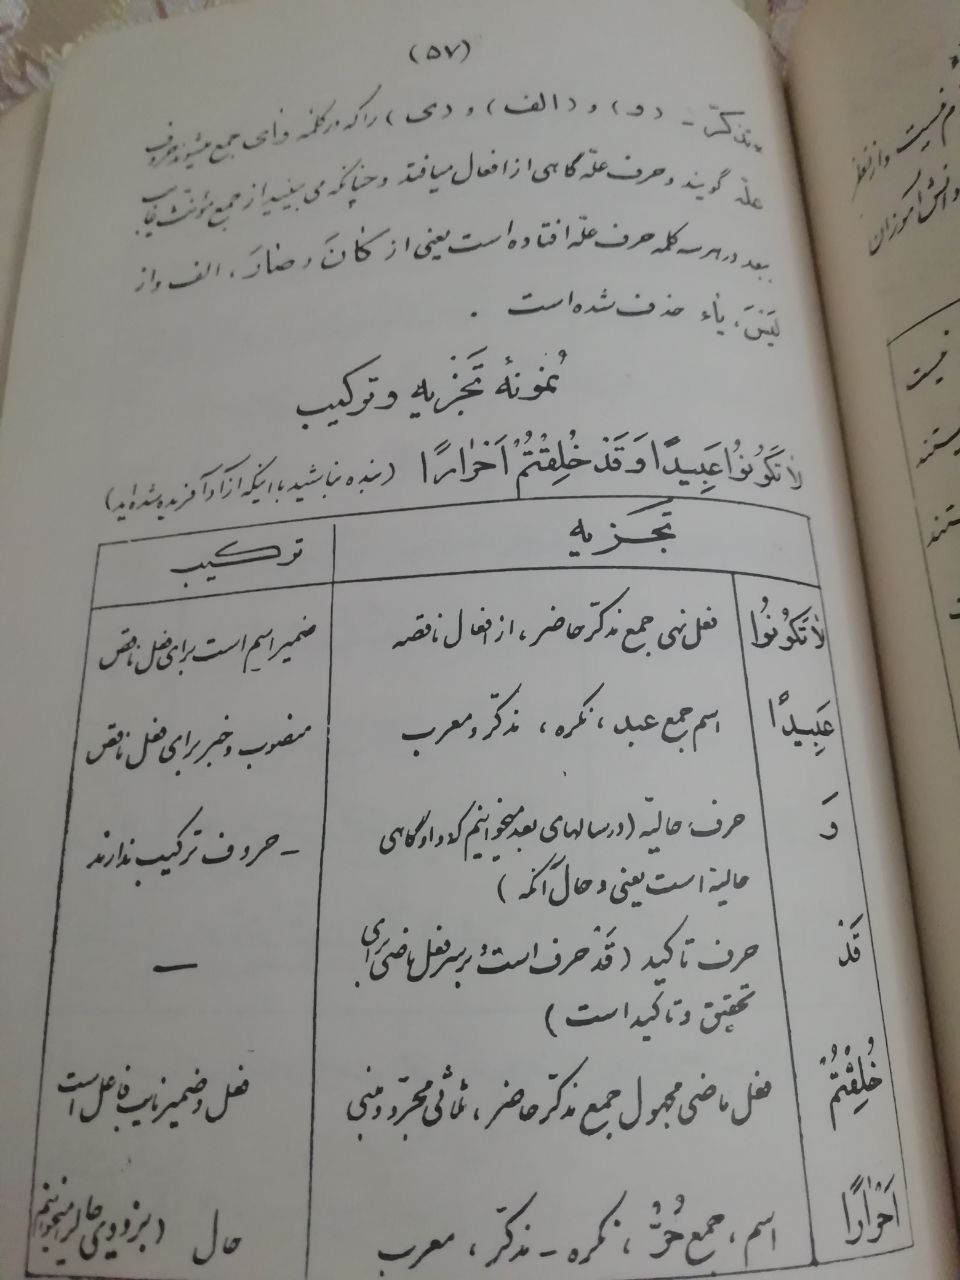 (۵۷)
تذکّر - (و) و (الف) و (ی) را که در کلمه وای جمع میشوند حروف
علّه گویند و حرف علّه گاهی از افعال میافتد و چنانکه می بینید از جمع مؤنث غایب
ببعد در هر سه کلمه حرف علّه افتاده است یعنی از کانَ و صارَ، الف و از
لَیْسَ، یاء حذف شده است.
نمونهٔ تجزیه و ترکیب
لاٰتَکُونُوا عَبِیداً وَ قَدْ خُلِقْتُمْ اَحْرٰارًا (بنده نباشید با اینکه آزاد آفریده شده‌اید)
تجزیه
ترکیب
لاٰتَکُونُوا فعل نهی جمع مذکّر حاضر، از افعال ناقصه ضمیر اسم است برای فعل ناقص
عَبِیداً اسم جمع عبد، نکره، مذکّر و معرب منصوب و خبر برای فعل ناقص
وَ حرف حالیّه (در سالهای بعد میخوانیم که واو گاهی - حروف ترکیب ندارند
حالیّه است یعنی و حال آنکه)
قَدْ حرف تاکید (قَدْ حرف است و بر سر فعل ماضی برای —
تحقیق و تاکید است)
خُلِقْتُمْ فعل ماضی مجهول جمع مذکّر حاضر، ثلاثی مجرّد و مبنی فعل و ضمیر نایب فاعل است
اَحْرٰارًا اسم، جمع حُرّ، نکره - مذکّر، معرب حال (بزودی حال را میخوانیم
نیست
ستند
ستند
م نیست و از نظر
دانش آموزان